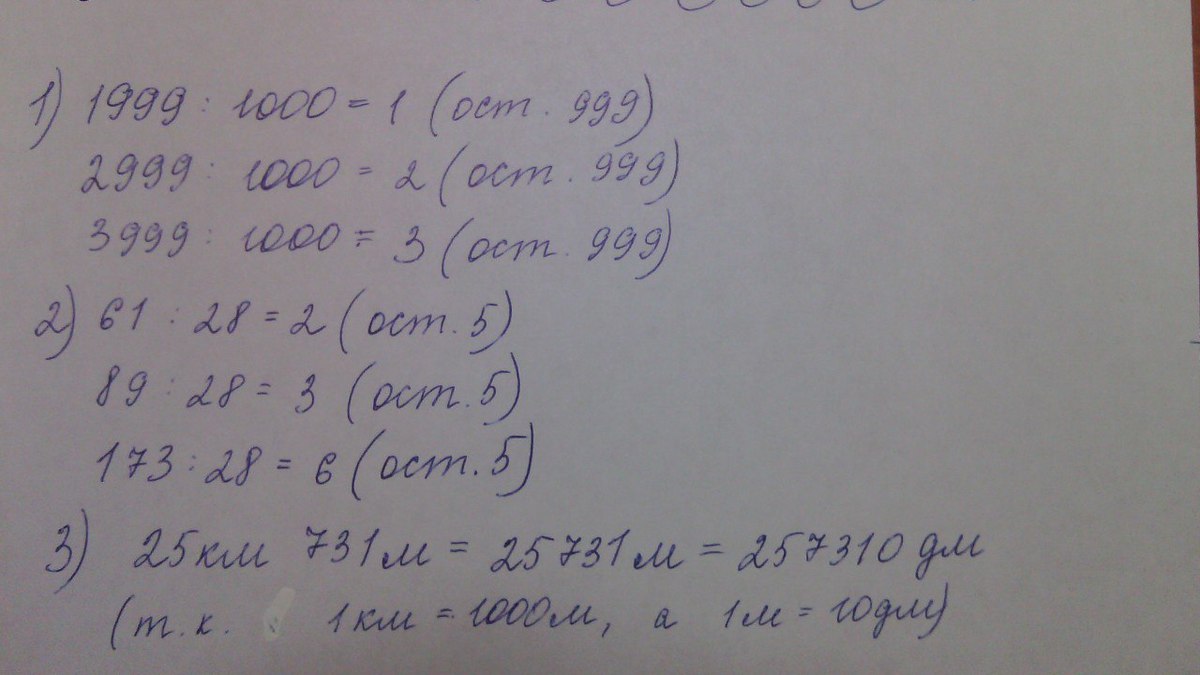 1) 1999 : 1000 = 1 (ост. 999)
2999 : 1000 = 2 (ост. 999)
3999 : 1000 = 3 (ост. 999)
2) 61 : 28 = 2 (ост. 5)
89 : 28 = 3 (ост. 5)
173 : 28 = 6 (ост. 5)
3) 25км 731м = 25731м = 257310 дм
(т.к. 1км = 1000м, а 1м = 10дм)